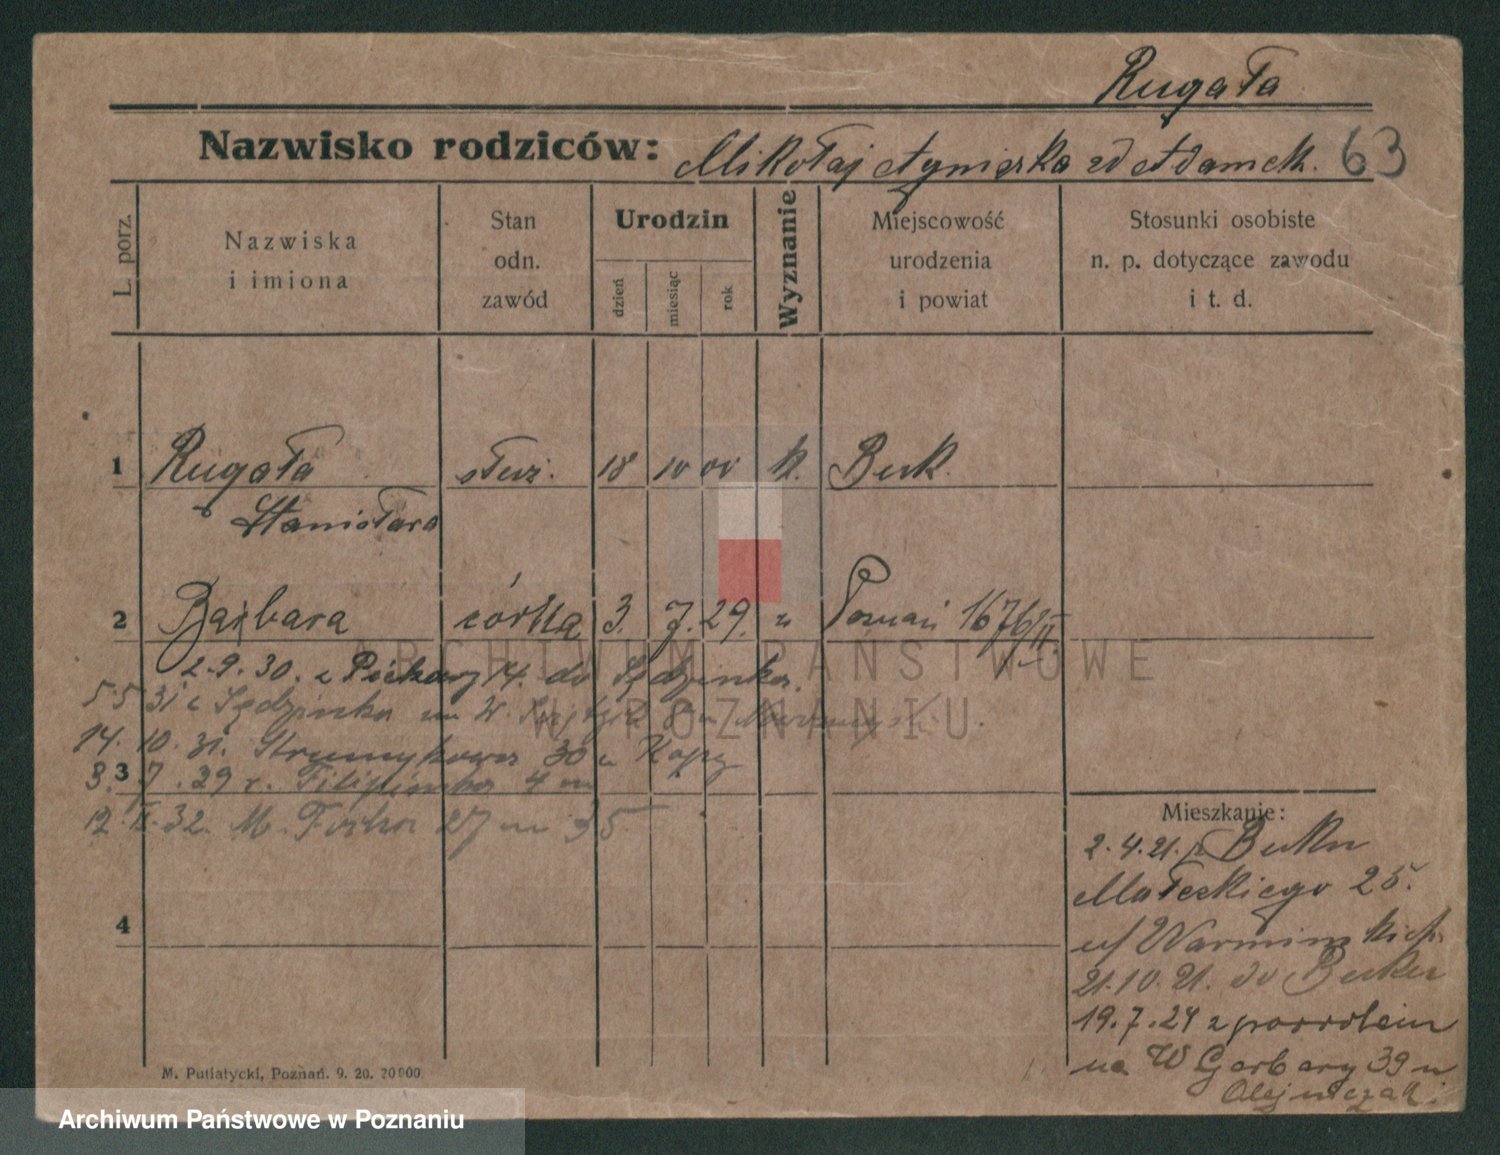 Rugała
Nazwisko rodziców: Mikołaj Agnieszka zd Adamek. 63
L. porz.
Nazwiska
i imiona
Stan
odn.
zawód
Urodzin
dzień
miesiąc
rok
Wyznanie
Miejscowość
urodzenia
i powiat
Stosunki osobiste
n. p. dotyczące zawodu
i t. d.
1 Rugała służ. 18 10 00 k. Buk.
Stanisława
2 Barbara córka 3. 7. 29. " Poznań 1676/II
2.9.30. z Piekary 14. do
5.5 31 W.
14. 10. 31. Strumykowa 30
3
3. 7. 29 4
12. 32. M. Focha 27 m 35
4
Mieszkanie:
2.4.21. z Buku
Małeckiego 25.
u/
21.10.21. do Buku
19.7.24 z powrotem
na W Garbary 39 u
Olejniczak.
M. Putiatycki, Poznań. 9. 20. 20000
ARCHIWUM PAŃSTWOWE
W POZNANIU
Archiwum Państwowe w Poznaniu